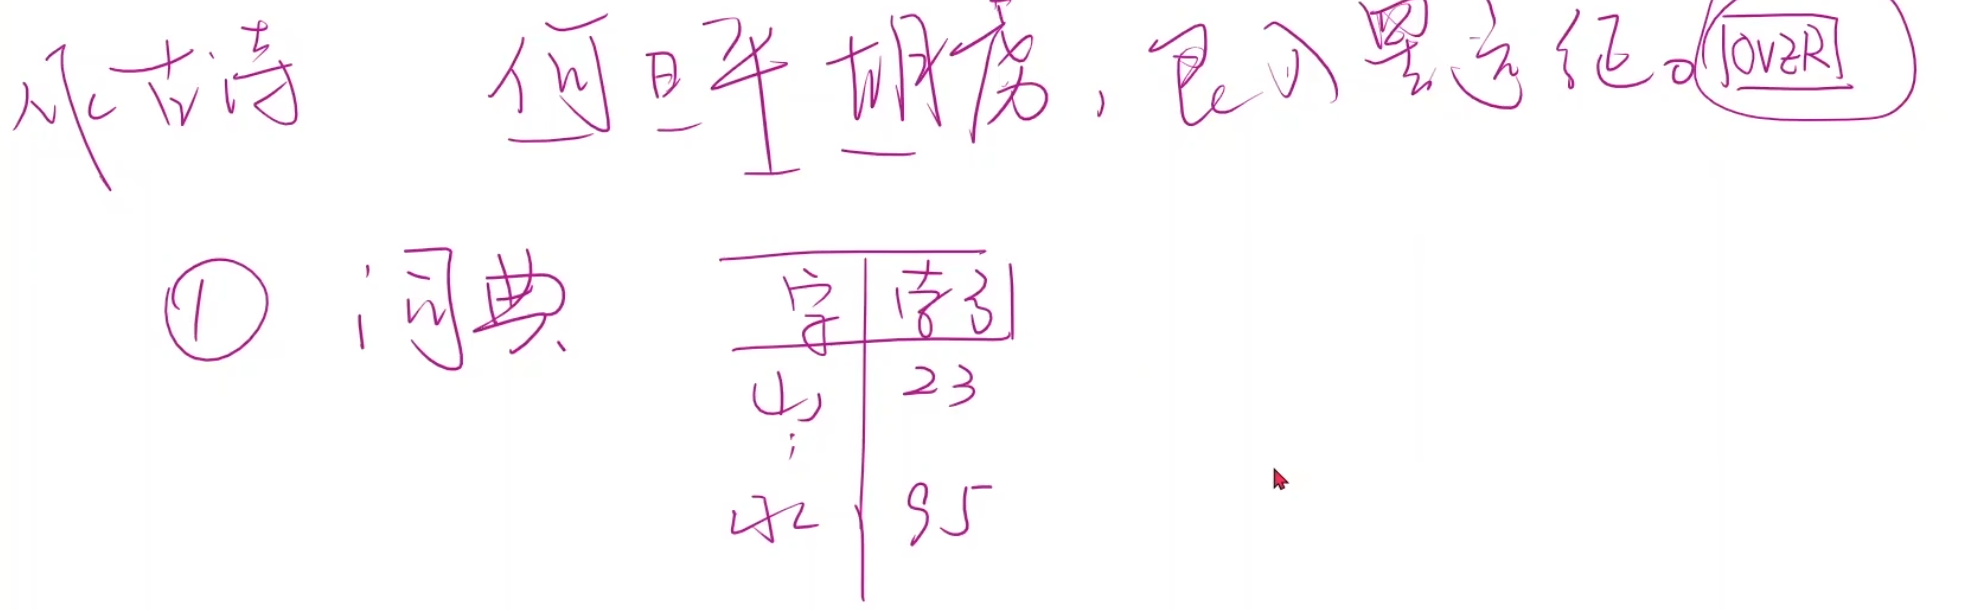 古诗 何日平胡虏,良人罢远征。[OVER]
① 词典 字 索引
山 23
⋮
水 95